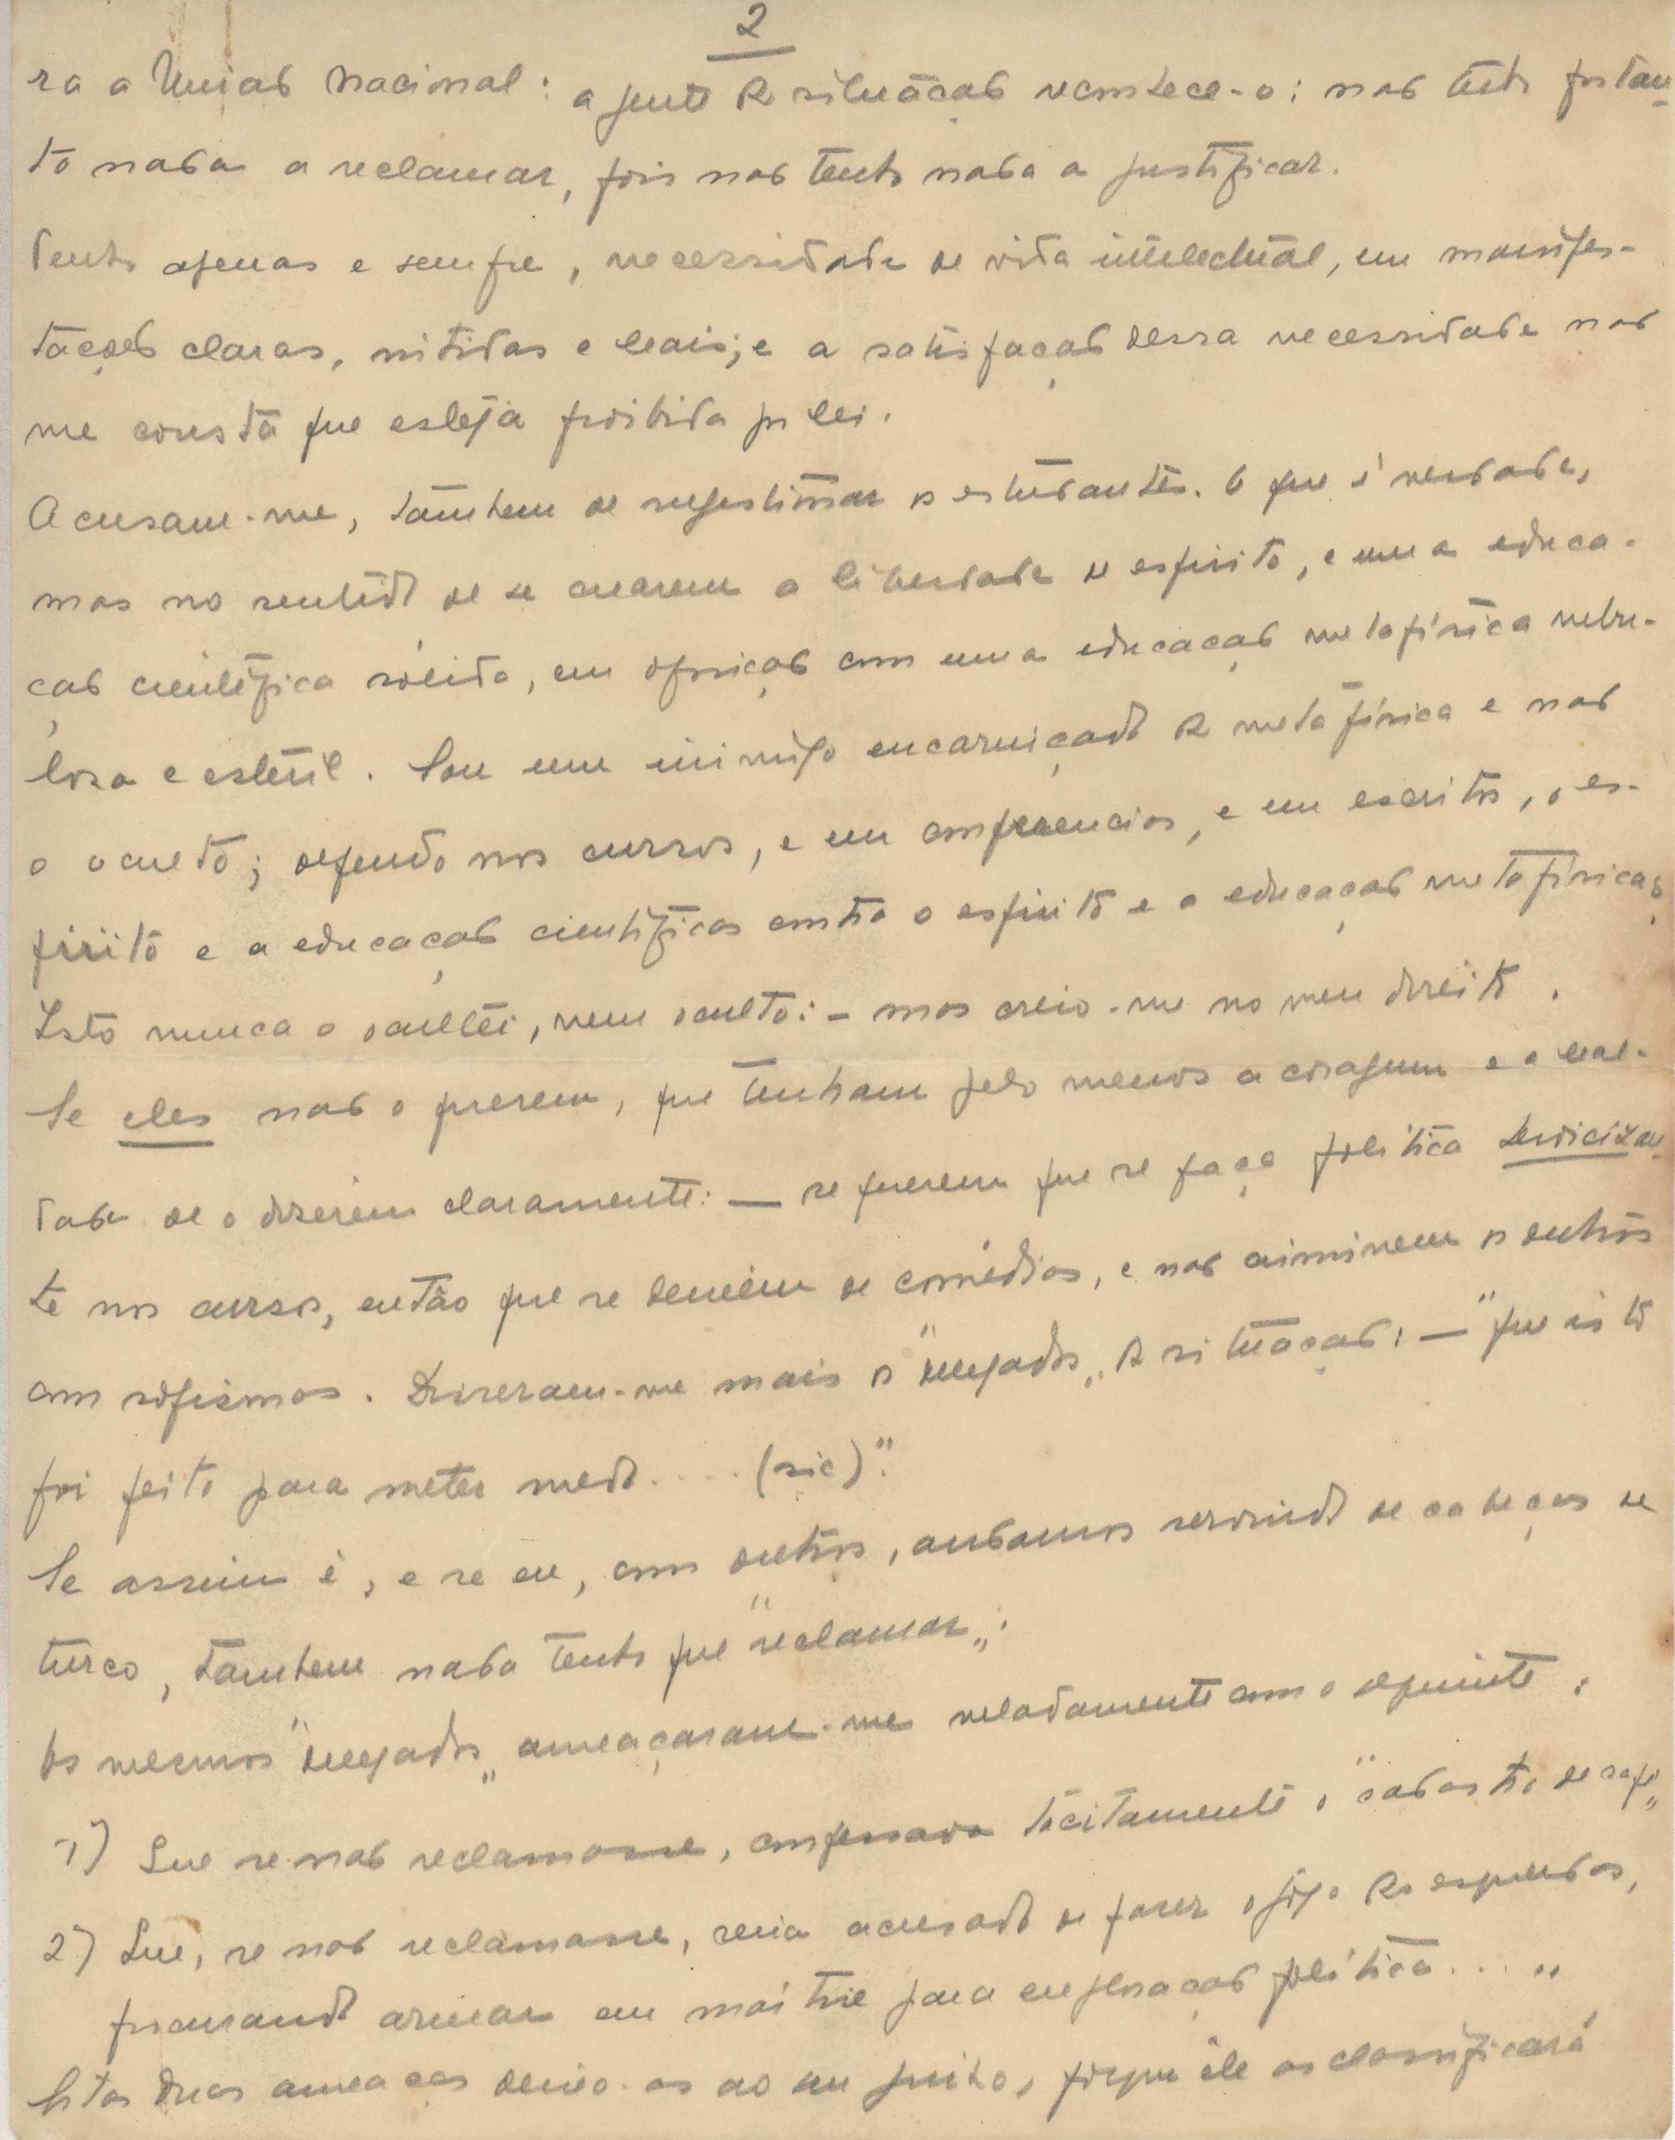 2
ra a União Nacional: a gente da situação reconhece-o: não tenho portan-
to nada a reclamar, pois não tenho nada a justificar.
Tenho apenas e sempre, necessidade de vida intelectual, em manifes-
tações claras, nitidas e leais; e a satisfação dessa necessidade não
me consta que esteja proibida por lei.
Acusam-me, tambem de sugestionar os estudantes. O que é verdade,
mas no sentido de se crearem a liberdade de espirito, e uma educa-
ção cientifica sólida, em oposição com uma educação metafisica nebu-
losa e esteril. Sou um inimigo encarniçado da metafísica e não
o oculto; defendo nos cursos, e em conferencias, e em escritos, o es-
pirito e a educação cientificos contra o espirito e a educação metafísicas.
Isto nunca o ocultei, nem oculto: - mas creio-me no meu direito.
Se eles não o querem, que tenham pelo menos a coragem e a leal-
dade de o dizerem claramente: — se querem que se faça politica
te nos cursos, então que se deixem de comédias, e não aos outros
com sofismas. Disseram-me mais os "delegados„ da situação: — "que isto
foi feito para meter medo..... (sic)".
Se assim é, e se eu, com outros, andamos servindo de cabeças de
turco, tambem nada tenho que "reclamar„.
Os mesmos "delegados„ ameaçaram-me veladamente com o seguinte:
1) Que se não reclamasse, confessava tácitamente o
2) Que, se não reclamasse, seria acusado de fazer o jogo das esquerdas,
procurando armar em mártir para exploração política....„
Estas duas ameaças deixo-as ao seu juizo, porque êle as classificará